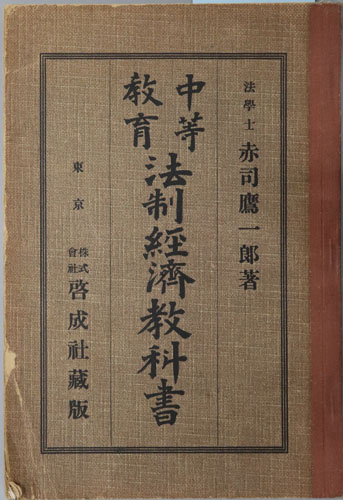 法學士 赤司鷹一郎著
中等教育 法制經濟教科書
東京 株式會社 啓成社藏版